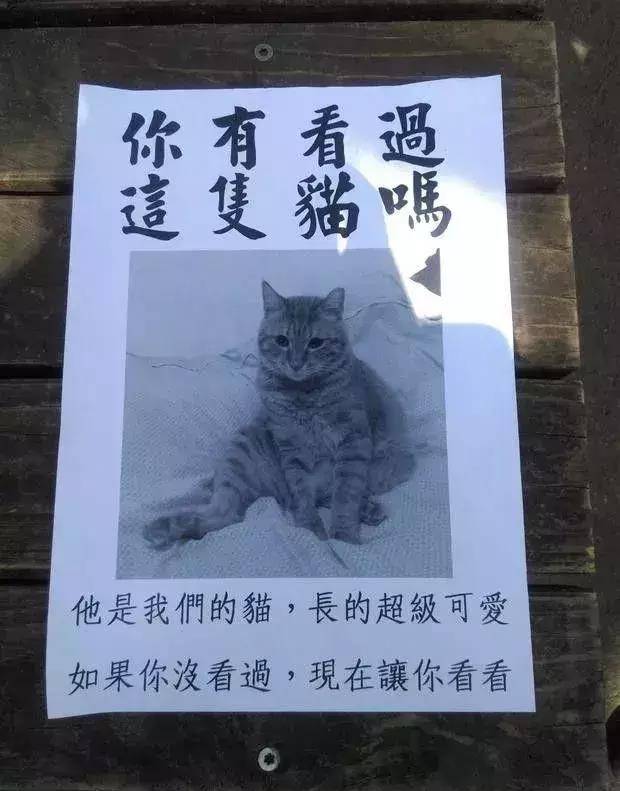 你有看過
這隻貓嗎
他是我們的貓，長的超級可愛
如果你沒看過，現在讓你看看